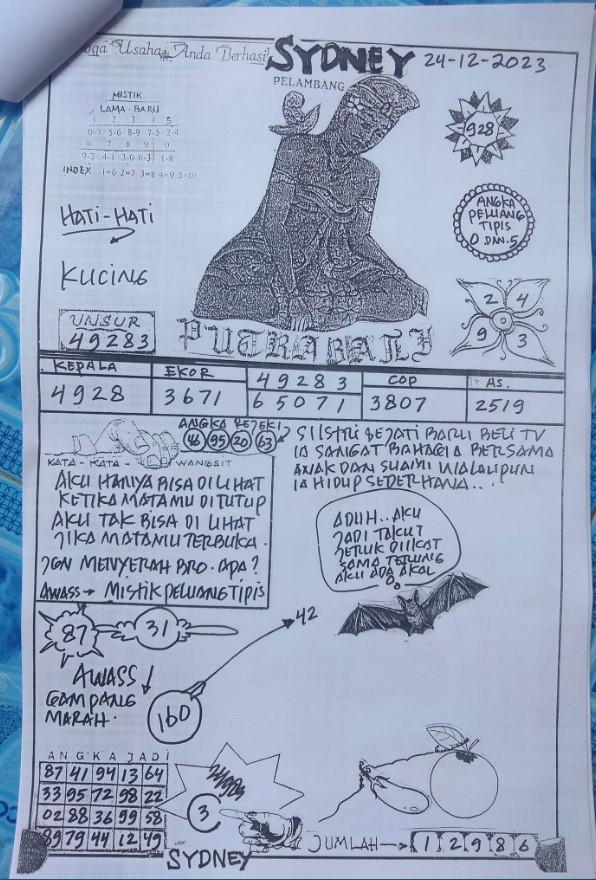 Usaha Anda Berhasil SYDNEY 24-12-2023
PELAMBANG
MISTIK
LAMA - BARU
1 2 3 4 5
0-7 5-6 8-9 7-5 2-4
6 7 8 9 0
9-2 4-1 3-0 6-3 1-8
INDEX 1=6 2=7 3=8 4=9 5=0
928
HATI-HATI
ANGKA
PELUANG
TIPIS
0 DAN.5
KUCING
2 4
9 3
UNSUR
49283
PUTRA BALI
KEPALA EKOR 49283 COP AS.
4928 3671 65071 3807 2519
ANGKA REJEKI
46 95 20 63
SI ISTRI SEJATI BARU BELI TV
IA SANGAT BAHAGIA BERSAMA
ANAK DAN SUAMI WALAUPUN
IA HIDUP SEDERHANA...
KATA - KATA - WANGSIT
AKU HANYA BISA DI LIHAT
KETIKA MATAMU DITUTUP
AKU TAK BISA DI LIHAT
JIKA MATAMU TERBUKA.
JGN MENYERAH BRO. APA?
AWASS → MISTIK PELUANG TIPIS
ADUH.. AKU
JADI TAKUT
JERUK DIIKAT
SAMA TERUNG
AKU ADA AKAL
87 31
42
AWASS
GAMPANG
MARAH.
160
ANGKA JADI
87 41 94 13 64
33 95 72 98 22
02 88 36 99 58
89 79 44 12 49
3
JUMLAH → 1 2 9 8 6
SYDNEY